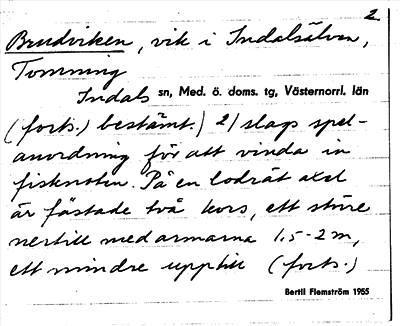 2
Brudviken, vik i Indalsälven,
Tomming
Indals sn, Med. ö. doms. tg, Västernorrl. län
(forts.) bestämt.) 2/ slags spel-
anordning för att vinda in
fisknoten. På en lodrät axel
är fästade två kors, ett större
nertill med armarna 1,5-2 m,
ett mindre upptill (forts.)
Bertil Flemström 1955